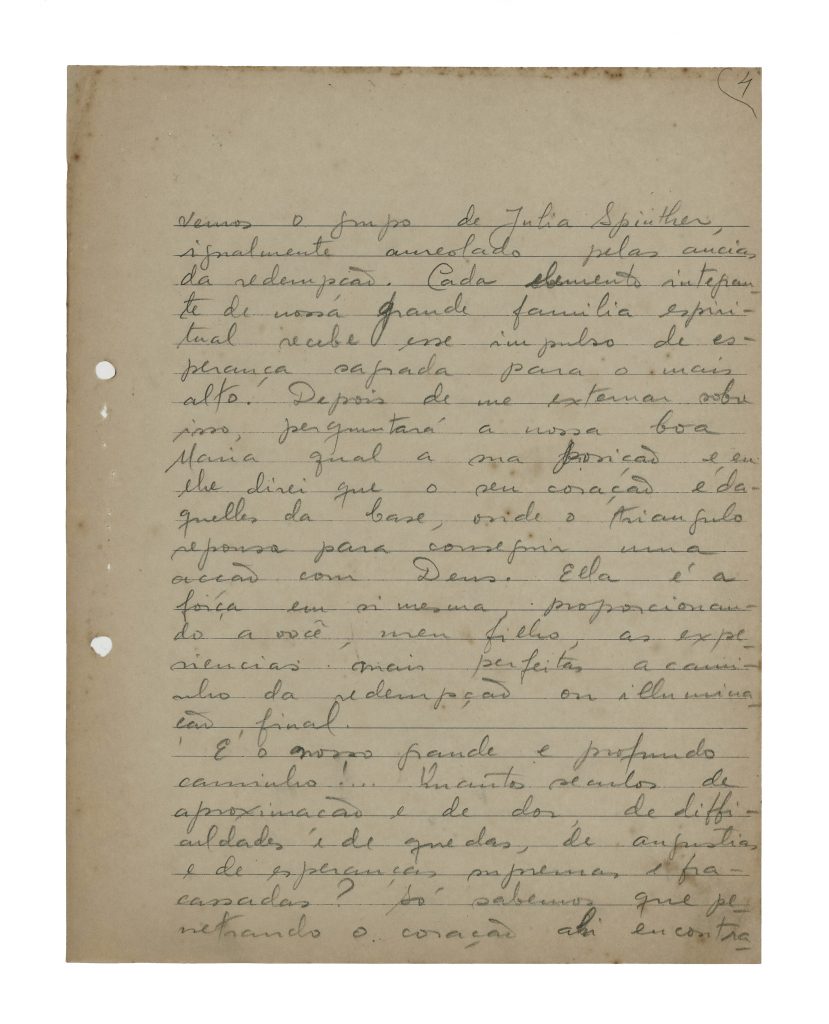 4
vemos o grupo de Julia Spinther,
igualmente aureolado pelas ancias
da redempção. Cada elemento integran-
te de nossa grande familia espiri-
tual recebe esse impulso de es-
perança sagrada para o mais
alto. Depois de me externar sobre
isso, perguntará a nossa boa
Maria qual a sua posição e eu
lhe direi que o seu coração é da-
quelles da base, onde o triangulo
repousa para conseguir uma
acção com Deus. Ella é a
força em si mesma, proporcionan-
do a você, meu filho, as expe-
riencias mais perfeitas a cami-
nho da redempção ou illumina-
ção final.
E o nosso grande e profundo
caminho!... Quantos seculos de
aproximação e de dor, de diffi-
culdades e de quedas, de angustias
e de esperanças supremas e fra-
cassadas? Só sabemos que pe-
netrando o coração ahi encontra-